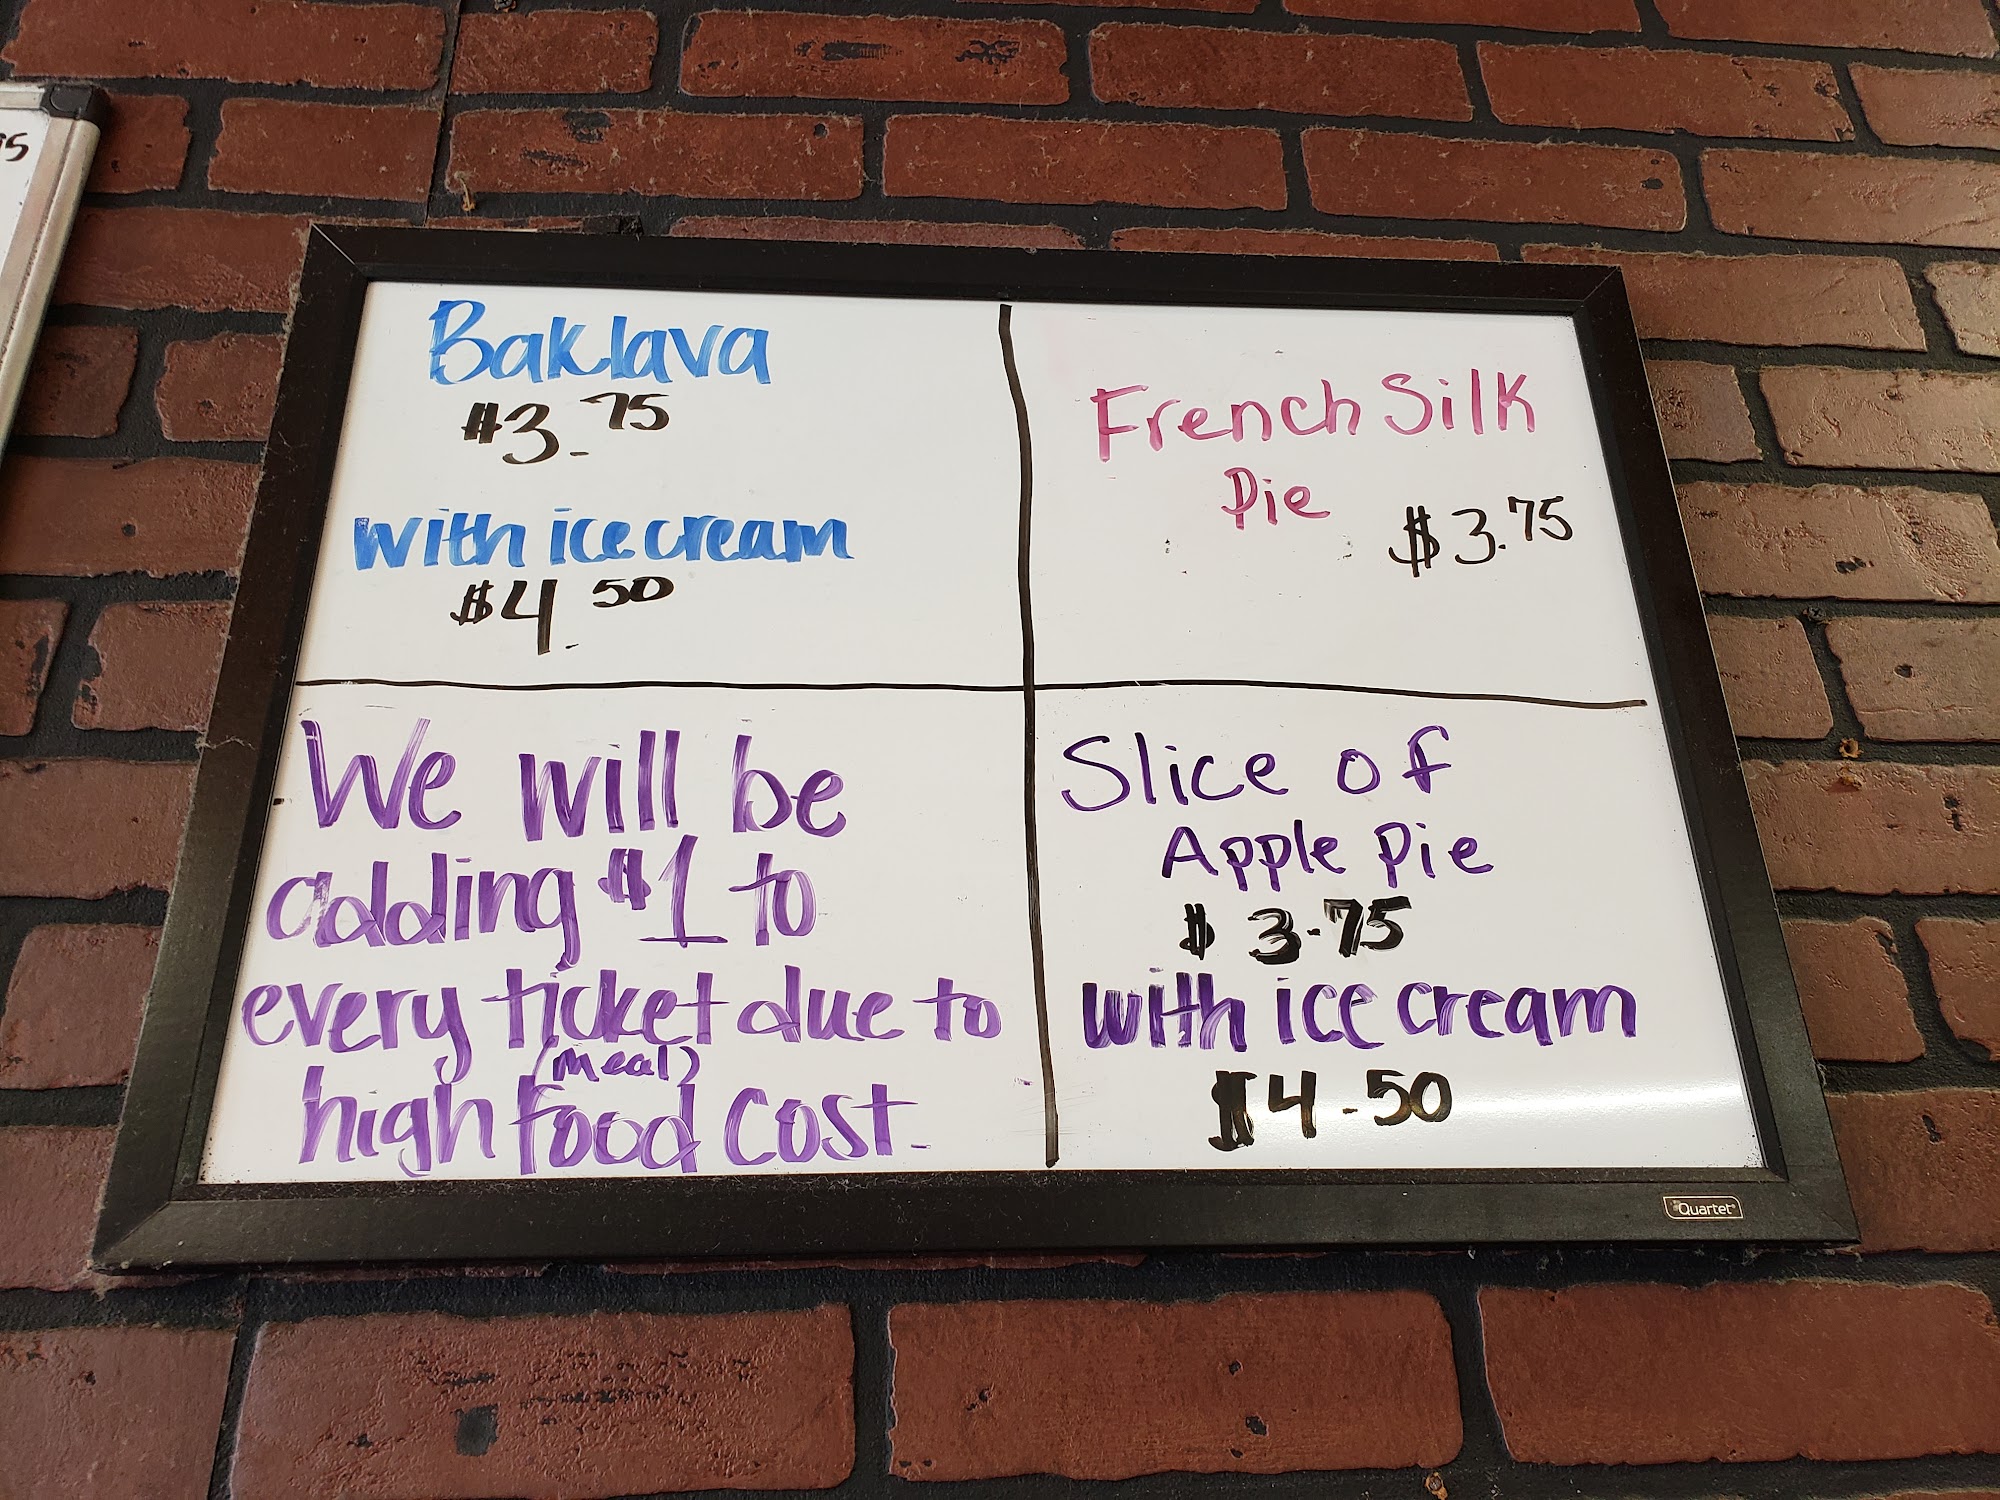 Baklava
$3.75
with ice cream
$4.50
French Silk
Pie
$3.75
We will be
adding $1 to
every ticket due to
(meal)
high food cost.
Slice of
Apple Pie
$3.75
with ice cream
$4.50
Quartet